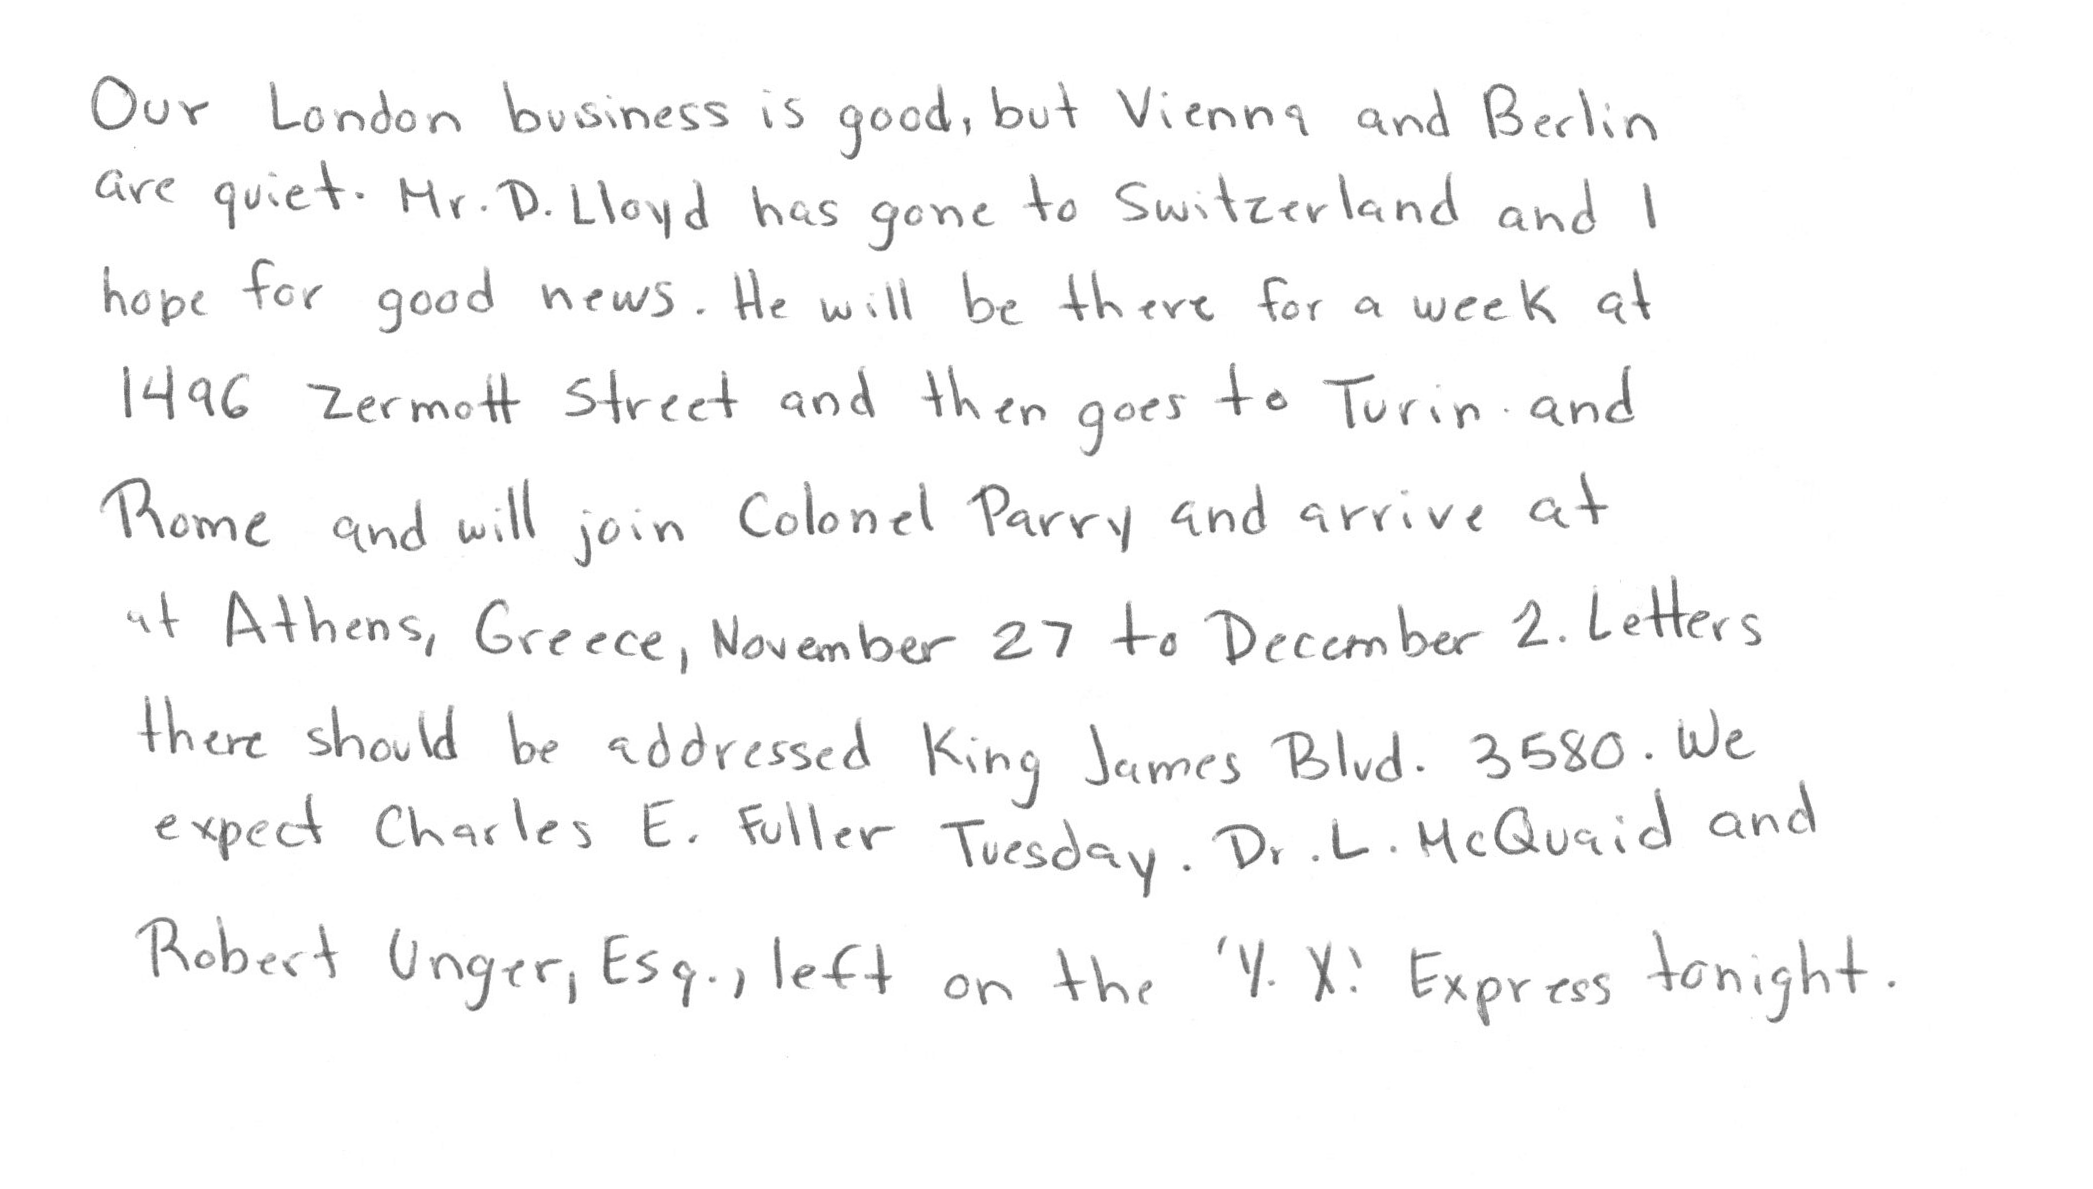 Our London business is good, but Vienna and Berlin
are quiet. Mr. D. Lloyd has gone to Switzerland and I
hope for good news. He will be there for a week at
1496 Zermott Street and then goes to Turin and
Rome and will join Colonel Parry and arrive at
at Athens, Greece, November 27 to December 2. Letters
there should be addressed King James Blvd. 3580. We
expect Charles E. Fuller Tuesday. Dr. L. McQuaid and
Robert Unger, Esq., left on the 'Y. X.' Express tonight.